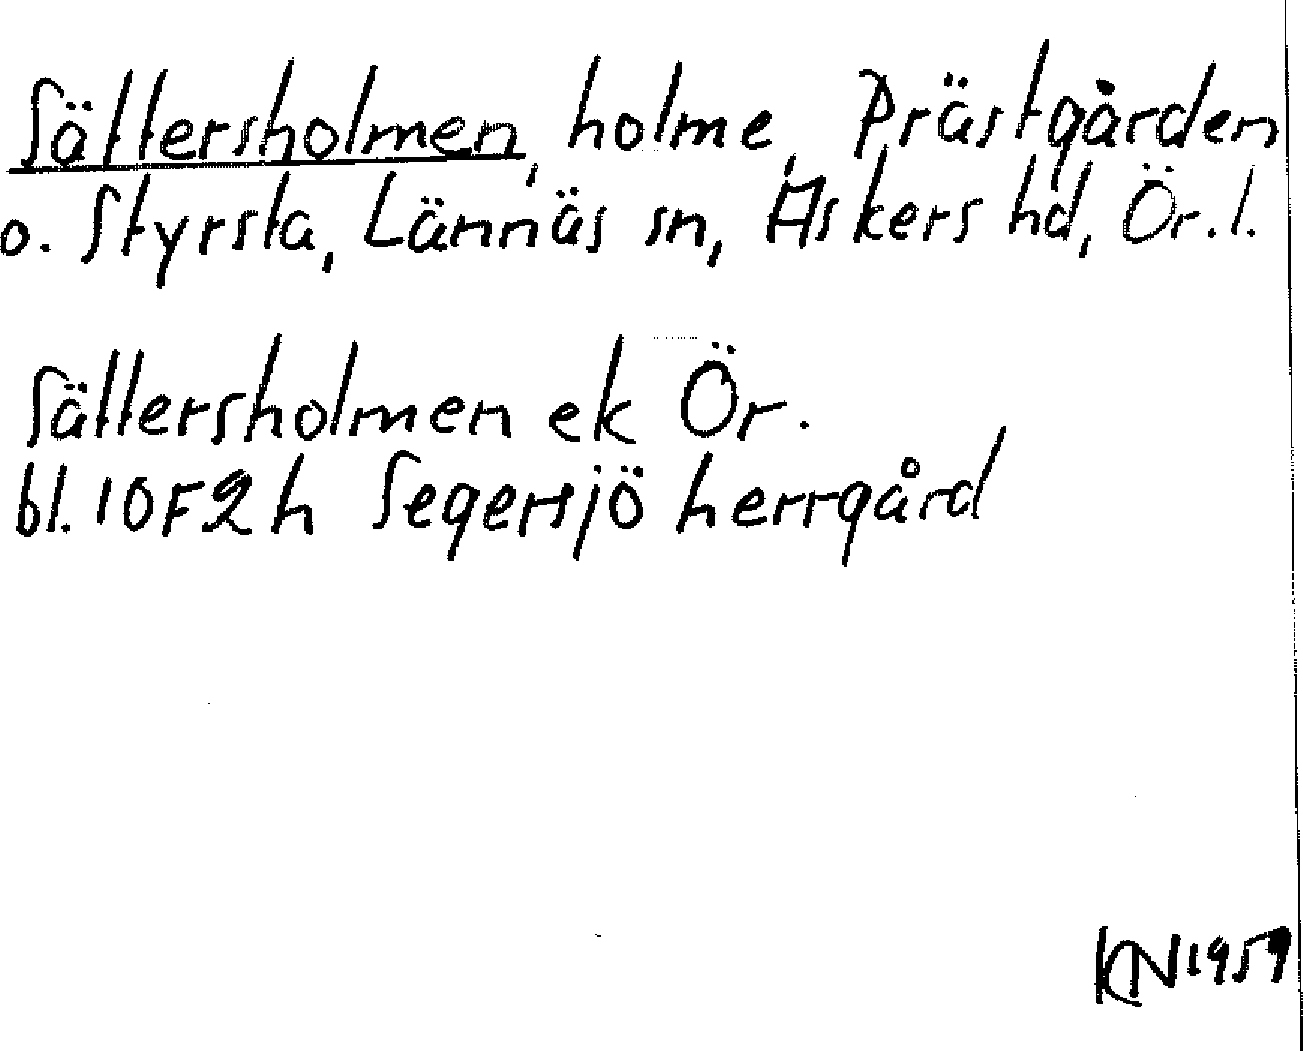 Sättersholmen, holme, Prästgården
o. Styrsta, Lännäs sn, Askers hd, Ör. l.
Sättersholmen ek Ör.
bl. 10F2h Segersjö herrgård
KN 1959